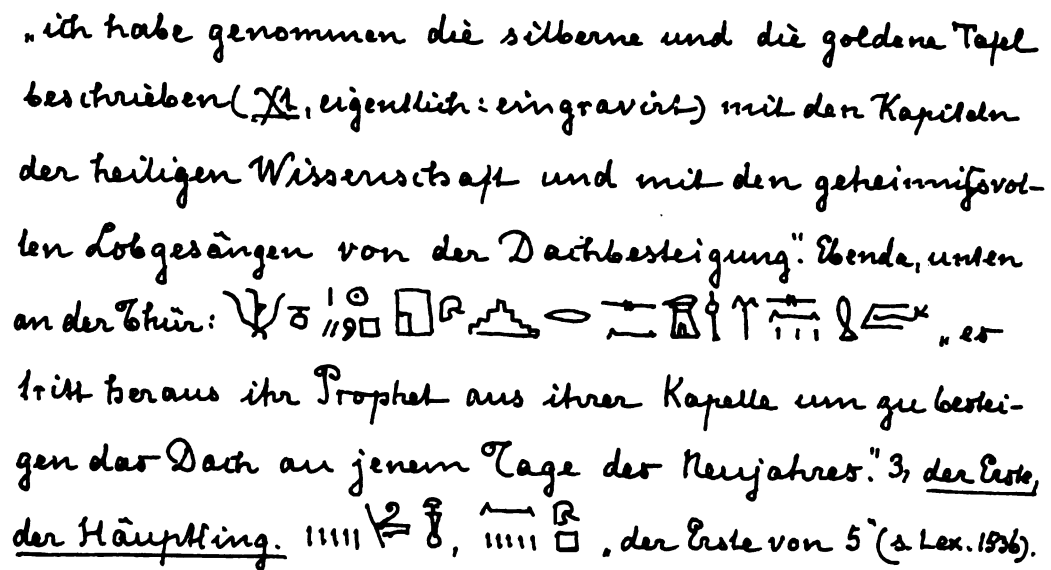 „ich habe genommen die silberne und die goldene Tafel
beschrieben ( , eigentlich: eingravirt) mit den Kapiteln
der heiligen Wissenschaft und mit den geheimnißvol-
len Lobgesängen von der Dachbesteigung". Ebenda, unten
an der Thür: „es
tritt heraus ihr Prophet aus ihrer Kapelle um zu bestei-
gen das Dach an jenem Tage des Neujahres." 3, der Erste,
der Häuptling. , „der Erste von 5" (s. Lex. 1536).